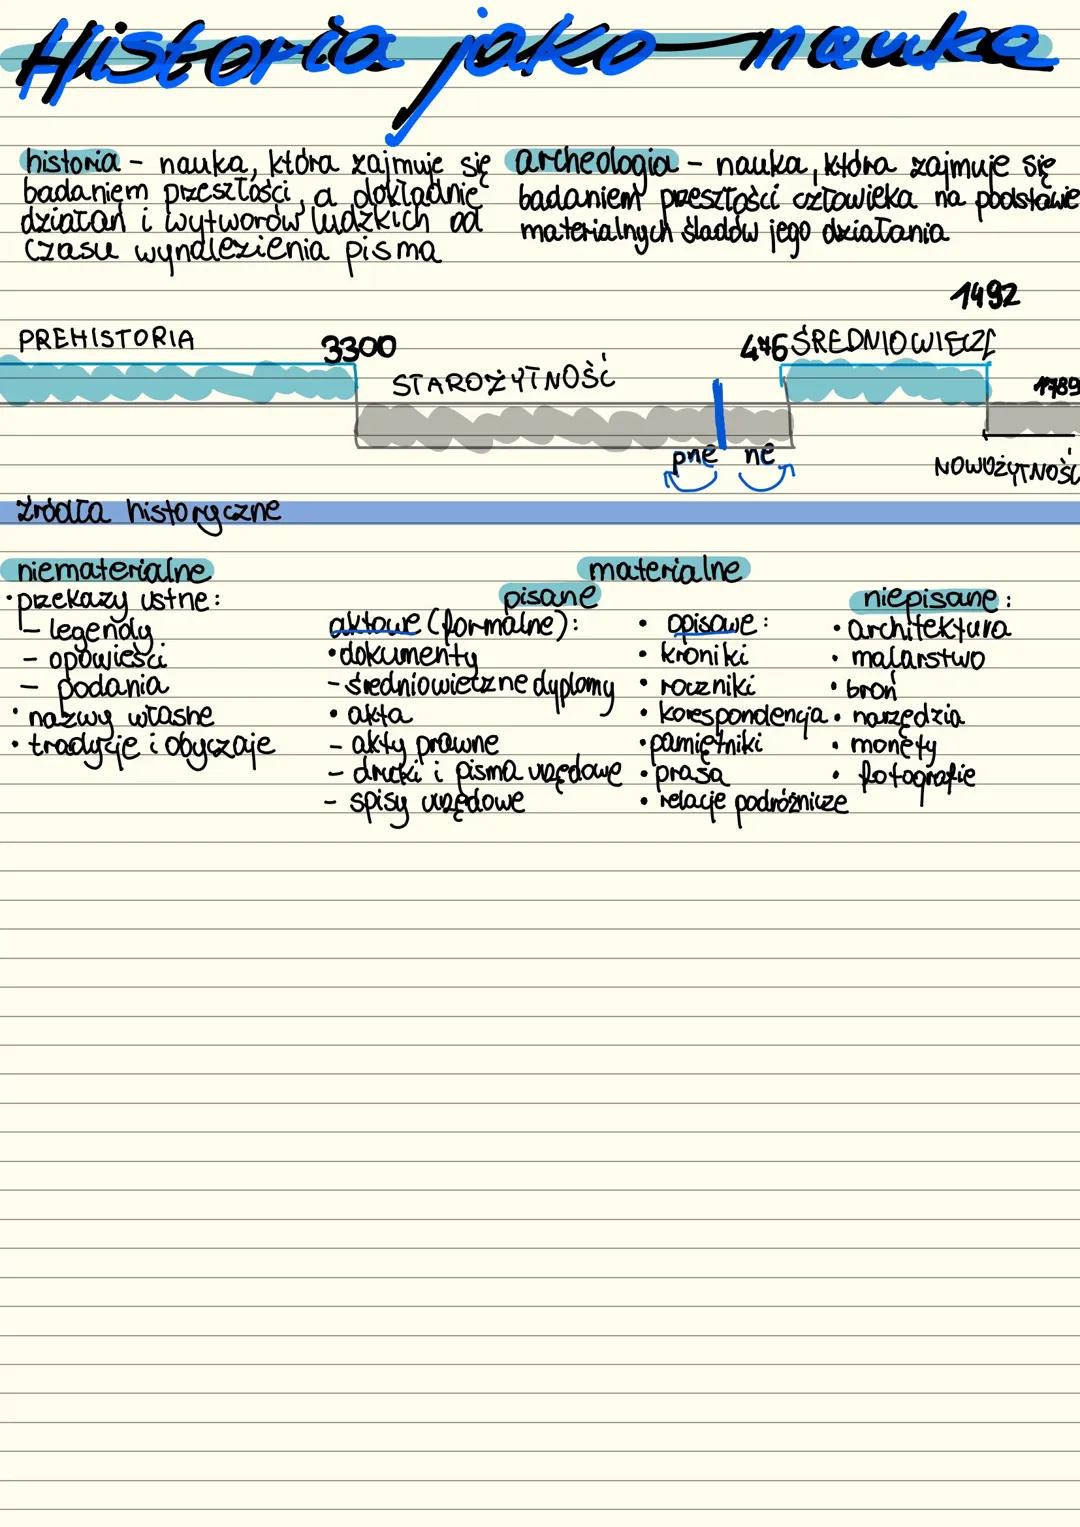 Historia jako nauka
historia - nauka, która zajmuje się
badaniem przeszłości, a dokładnie
działań i wytworów ludzkich od
czasu wynalezienia pisma
archeologia - nauka, która zajmuje się
badaniem przeszłości człowieka na podstawie
materialnych śladów jego działania
1492
PREHISTORIA 3300 476 ŚREDNIOWIECZE
STAROŻYTNOŚĆ 1789
pne ne NOWOŻYTNOŚĆ
źródła historyczne
niematerialne
• przekazy ustne:
- legendy
- opowieści
- podania
• nazwy własne
• tradycje i obyczaje
materialne
pisane
aktowe (formalne):
• dokumenty
- średniowieczne dyplomy
• akta
- akty prawne
- druki i pisma urzędowe
- spisy urzędowe
• opisowe:
• kroniki
• roczniki
• korespondencja
• pamiętniki
• prasa
• relacje podróżnicze
niepisane:
• architektura
• malarstwo
• broń
• narzędzia
• monety
• fotografie